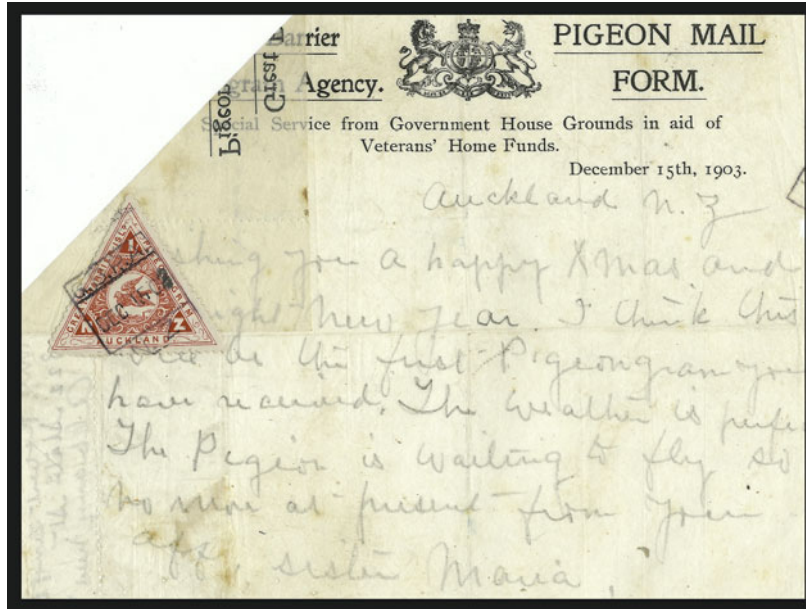 Barrier
gram Agency.
Pigeon
Great
PIGEON MAIL
FORM.
Special Service from Government House Grounds in aid of
Veterans' Home Funds.
December 15th, 1903.
Auckland N. Z
shing you a happy Xmas and
night New Year. I think this
be the first Pigeongram you
have received. The weather is perfe
The Pigeon is waiting to fly so
no more at present from your
aff. sister Maria
GREAT BARRIER ISLAND PIGEONGRAM
AUCKLAND
1/
N Z
DEC 14